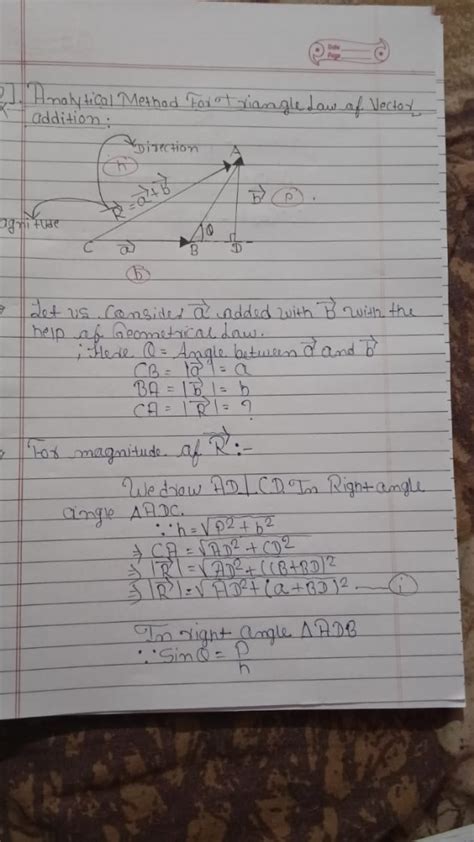 Date
Page
Q]. Analytical Method For triangle Law of Vector
addition:
Direction
A
h
R⃗ = a⃗+b⃗
b⃗ p .
agnitude
θ
C a⃗ B D
b
Let us Consider a⃗ added with b⃗ with the
help of Geometrical Law.
; Here θ = Angle between a⃗ and b⃗
CB = |a⃗| = a
BA = |b⃗| = b
CA = |R⃗| = ?
For magnitude of R⃗ :-
We draw AD⊥CD. In Right angle
angle ΔADC.
∵ h = √P²+b²
⇒ CA = √AD²+CD²
⇒ |R⃗| = √AD²+(CB+BD)²
⇒ |R⃗| = √AD²+(a+BD)² — (i)
In right angle ΔADB
∵ Sinθ = P/h